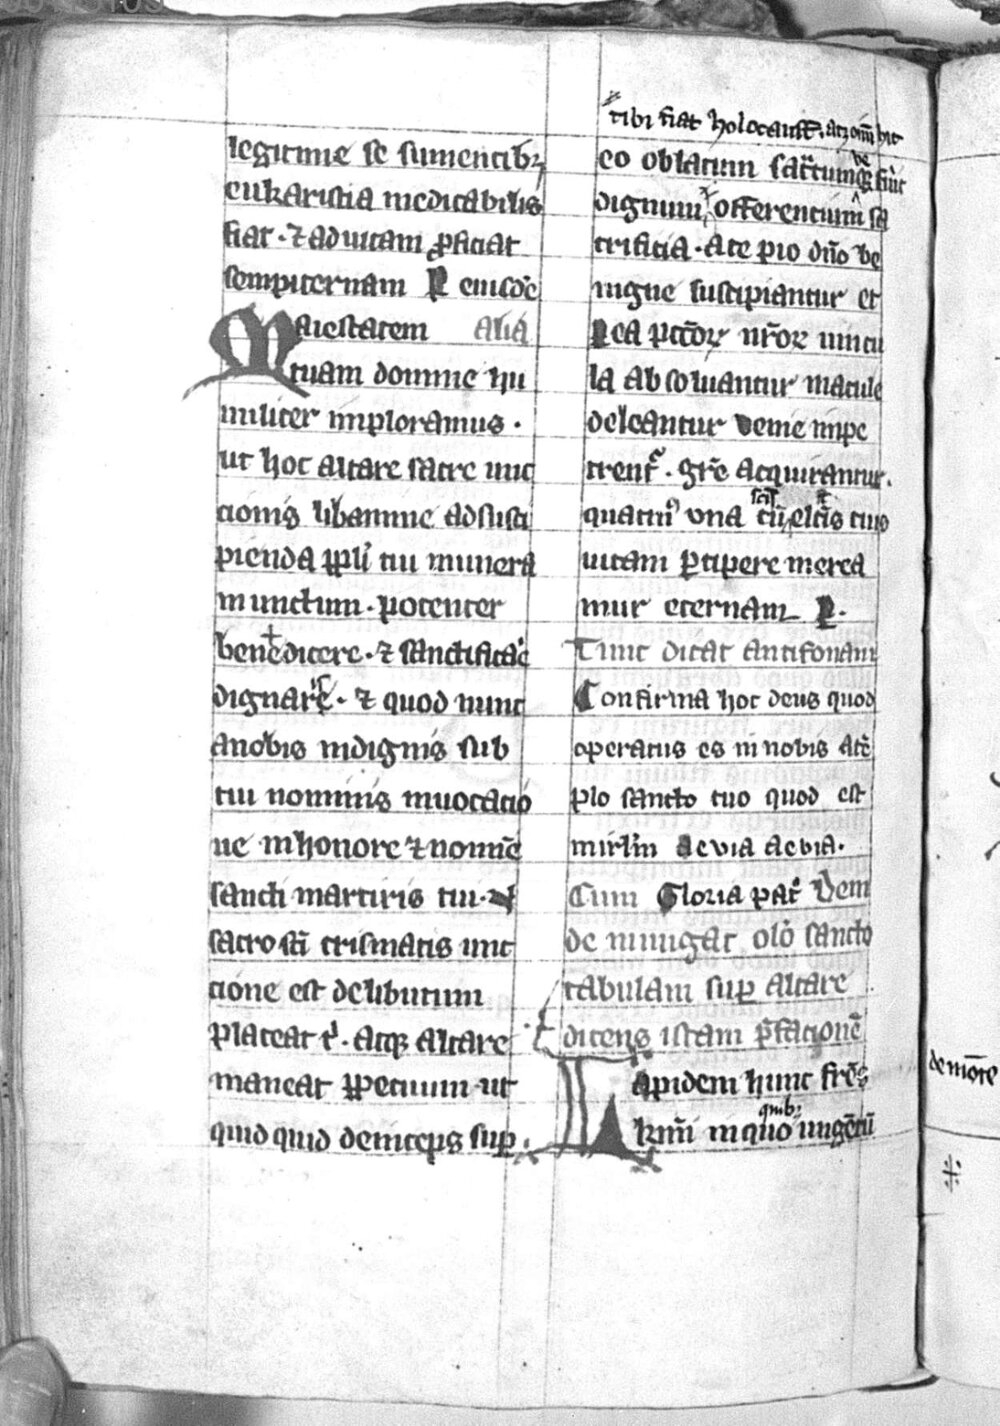 legitime se sumentibꝫ
eukaristia medicabilis
fiat · ⁊ ad uitam ꝓficiat
sempiternam P eiusdē
Maiestatem Alia
tuam domine hu
militer imploramus ·
ut hoc altare sacre unc
tionis libamine ad susci
pienda ppli tui munera
munctum · potenter
bene✝dicere · ⁊ sanctificare
dignare · ⁊ quod nunc
a nobis indignis sub
tui nominis inuocatio
ne in honore ⁊ nomine
sancti martiris tui · N
sacro sc̄i crismatis unc
tione est delibutum
placeat t · atqꝫ altare
maneat ꝑpetuum · ut
quid quid deinceps suꝑ ·
tibi fiat holocaustū
eo oblatum
dignum offerentium sa
crificia · A te pio dn̄o be
nigne suscipiantur et
P ea pctōꝝ nr̄oꝝ uincu
la absoluantur macule
deleantur venie impe
trent᷑ · gr̄e acquirantur ·
quatin᷒ una cū scīs ⁊ elc̄is tuis
uitam ꝑcipere merea
mur eternam P ·
Tunc dicat antifonam
Confirma hoc deus quod
operatus es in nobis a tē
plo sancto tuo quod est
in irl̄m aevia aevia ·
Cum Gloria patˀ Dein
de inungat oleo sancto
tabulam suꝑ altare
dicens istam p̄facionē
Lapidem hunc fr̄es
kmī in quo quibꝫ ungētū
de mōre